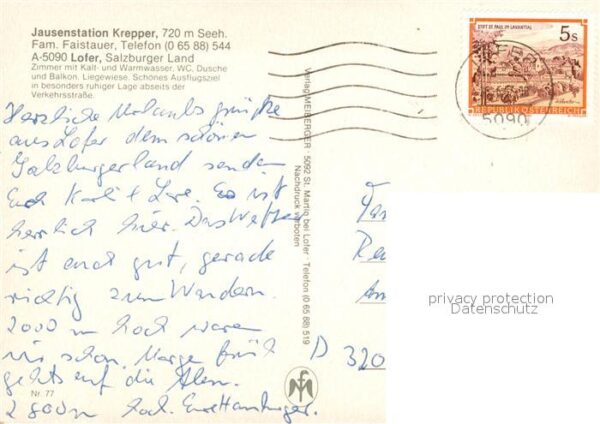 Jausenstation Krepper, 720 m Seeh.
Fam. Faistauer, Telefon (0 65 88) 544
A-5090 Lofer, Salzburger Land
Zimmer mit Kalt- und Warmwasser, WC, Dusche
und Balkon. Liegewiese. Schönes Ausflugsziel
in besonders ruhiger Lage abseits der
Verkehrsstraße.
Herzliche Urlaubsgrüße
aus Lofer dem schönen
Salzburgerland senden
Euch Karl + Lore. Es ist
herrlich hier. Das Wetter
ist auch gut, gerade
richtig zum Wandern.
2000 m hoch waren
wir schon. Morgen früh
gehts auf die Alm.
2800m hoch. Eure Hamburger.
Nr. 77
Verlag MEIBERGER · 5092 St. Martin bei Lofer · Telefon (0 65 88) 519
Nachdruck verboten
STIFT ST. PAUL IM LAVANTTAL
5 S
REPUBLIK ÖSTERREICH
5090
Fam
D 320
privacy protection
Datenschutz